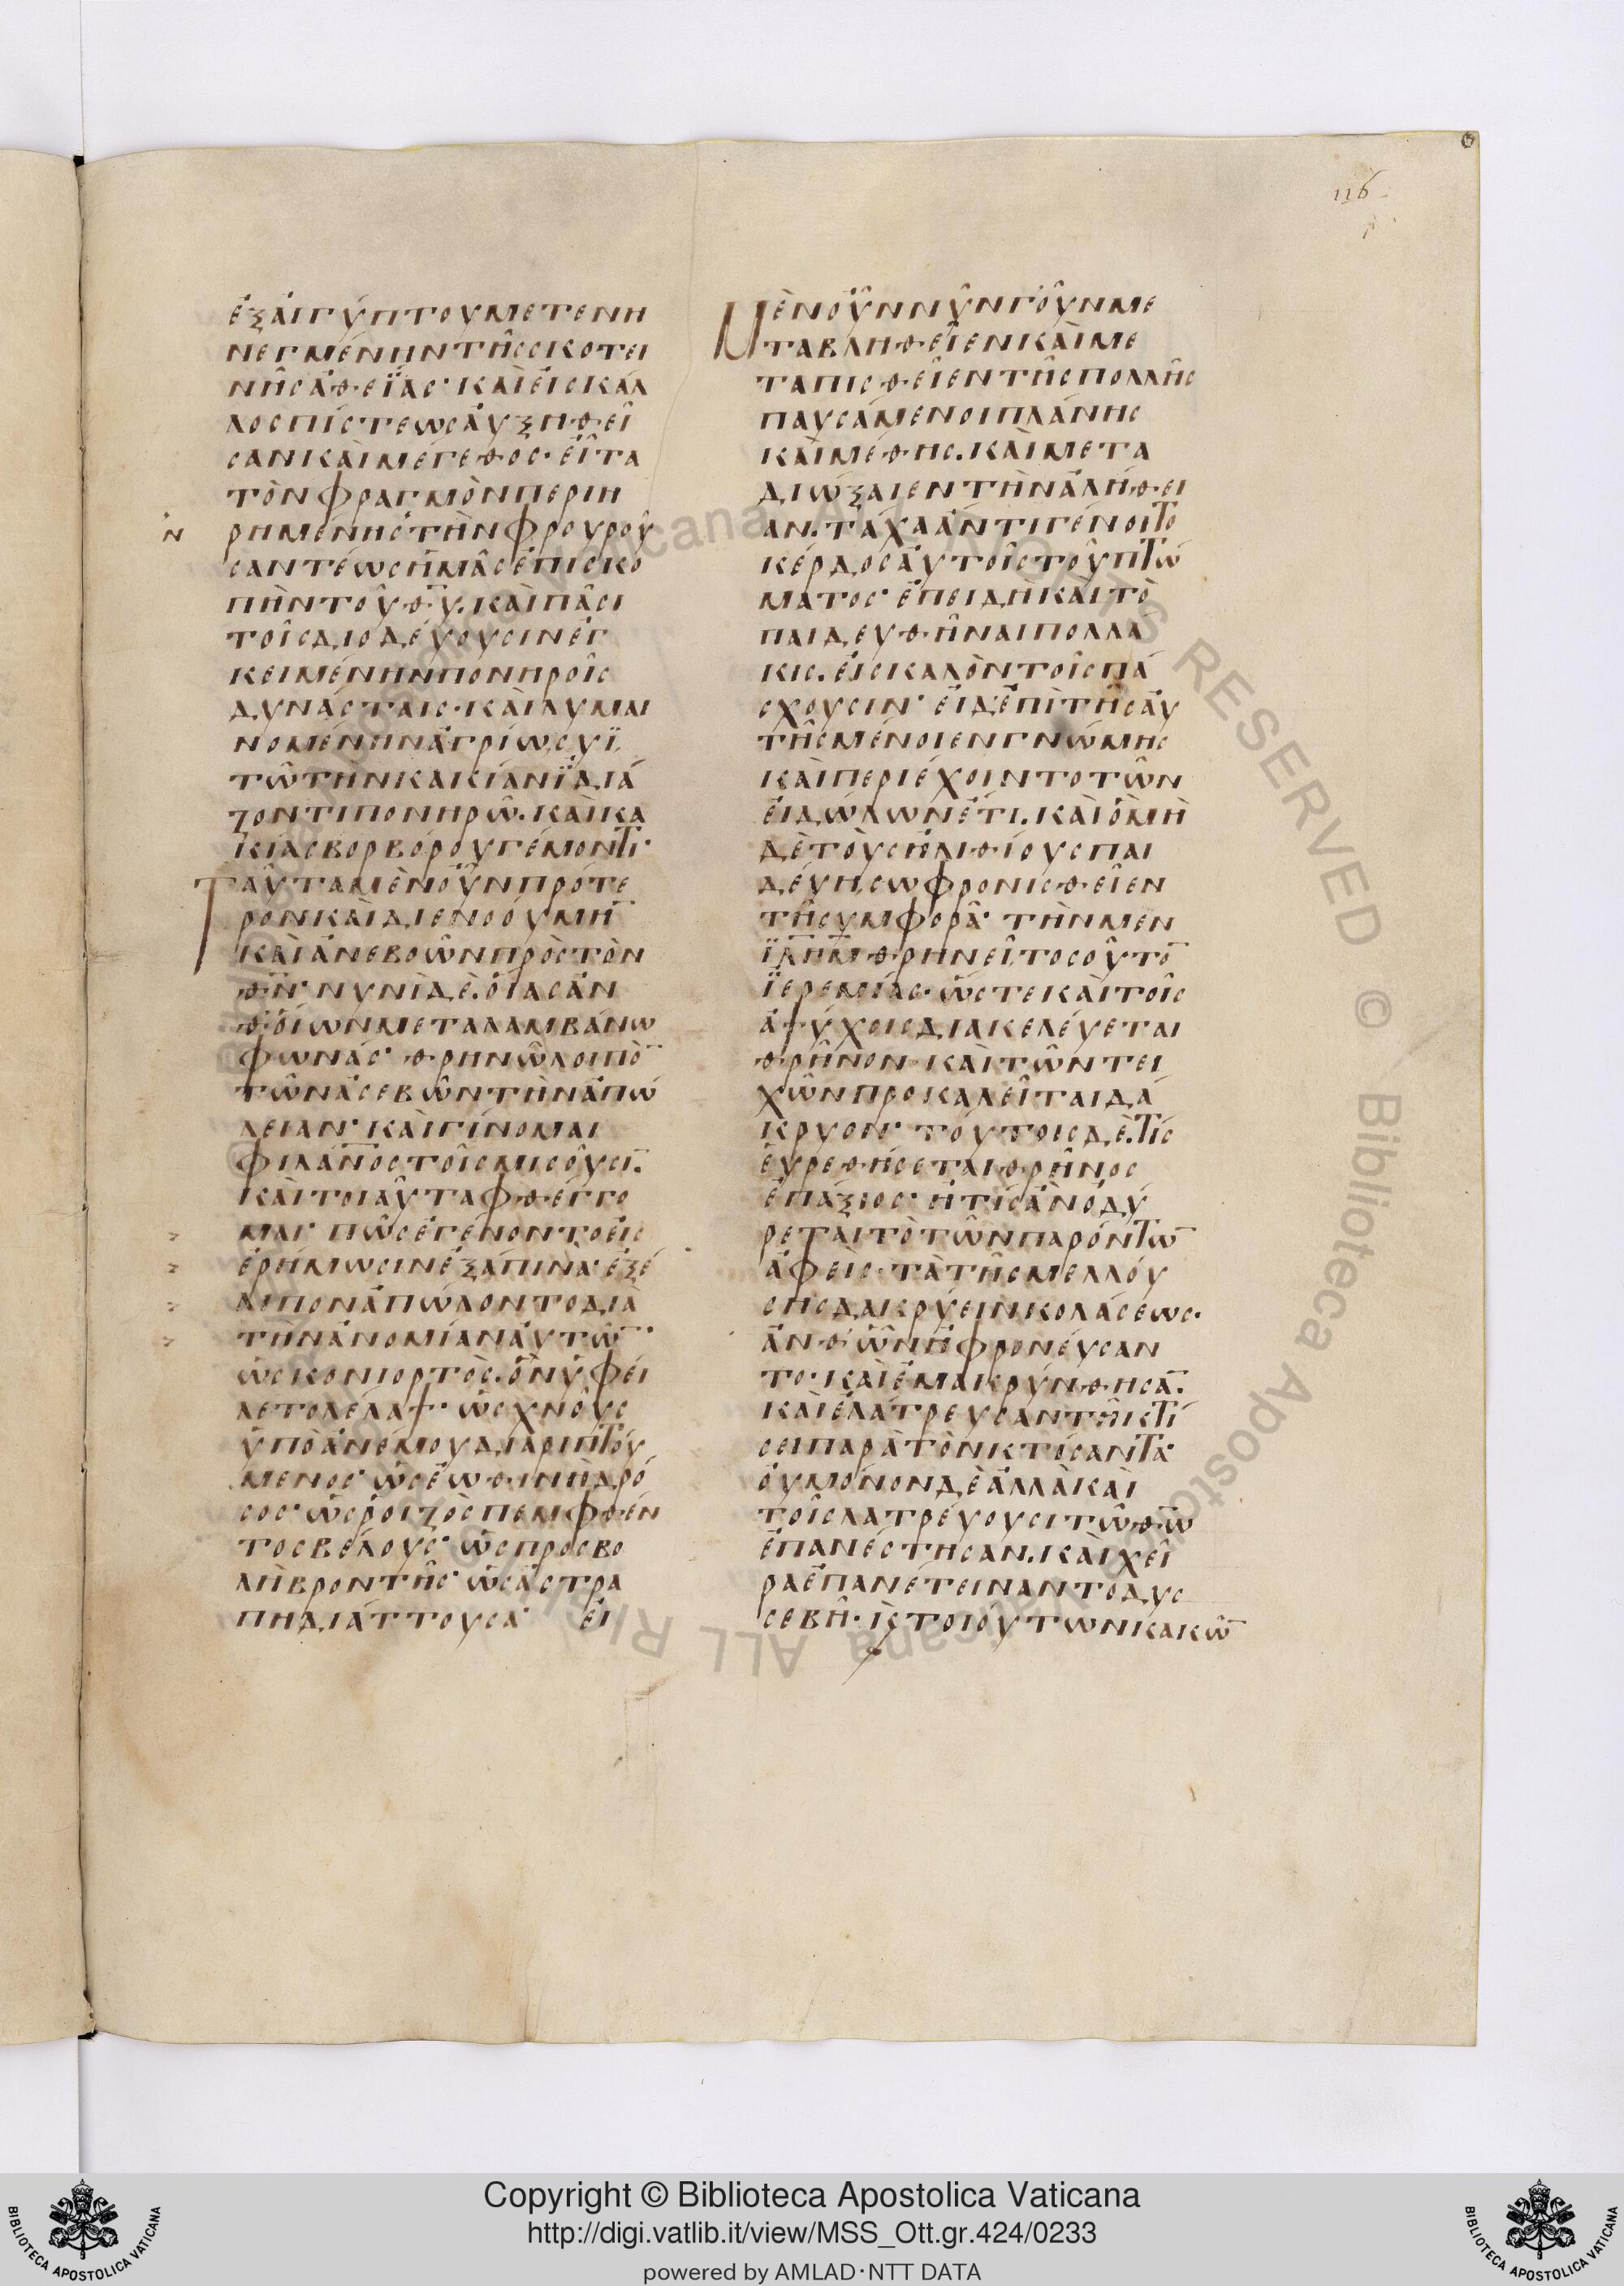 116
ἐξ ἀιγύπτου μετενη
νεγμένην τῆς σκοτει
νῆς ἀθεΐας· καὶ εἰς κάλ
λος πίστεως ἀυξηθεῖ
σαν καὶ μέγεθος· εἶτα
τὸν φραγμὸν περιη
ρημένης τὴν φρουροῦ
σαν τέως ἡμᾶς ἐπισκο
πὴν τοῦ θ̅υ̅. καὶ πᾶσι
τοῖς διοδέυουσιν ἐγ
κειμένην πονηροῖς
δυνάσταις· καὶ λυμαι
νομένην ἀγρίω συῒ
τῶ τὴν κακίαν ϊδιά
ζοντι πονηρῶ. καὶ κα
κίας βορβόρου γέμοντι·
Ταῦτα μὲν οὖν πρότε
ρον καὶ διενοούμη̅
καὶ ἀνεβοῶν πρὸς τὸν
θ̅ν̅· νυνὶ δὲ. ὅιας ἂν
θ' ὅιων μεταλαμβάνω
φωνάς· θρηνῶ λοιπὸ̅
τῶν ἀσεβῶν τὴν ἀπώ
λειαν· καὶ γίνομαι
φιλάν̅ο̅ς τοῖς μισοῦσι̅.
καὶ τοιαῦτα φθέγγο
μαι· πῶς ἐγένοντο εἰς
ἐρήμωσιν ἐξάπινα· ἐξέ
λιπον ἀπώλοντο διὰ
τὴν ἀνομίαν ἀυτῶ̅·
ὡς κονιορτὸς. ὃν ὑφεί
λετο λέλαψ· ὡς χνοῦς
ὑπὸ ἀνέμου διαριπτού
μενος· ὡς ἑωθινὴ δρό
σος· ὡς ῥοιζὸς πεμφθέν
τος βέλους· ὡς προσβο
λὴ βροντῆς· ὡς ἀστρα
πὴ διάττουσα· εἰ
Μὲν οὖν νῦν γοῦν με
ταβληθεῖεν καὶ με
ταπισθεῖεν τῆς πολλῆς
παυσάμενοι πλάνης
καὶ μέθης. καὶ μετα
διώξαιεν τὴν ἀλήθει
αν. τάχα ἀντιγένοιτο
κέρδος ἀυτοῖς τοῦ πτώ
ματος· ἐπειδὴ καὶ τὸ
παιδευθῆναι πολλά
κις. εἰς καλὸν τοῖς πά
σχουσιν· εἰ δ' ἐπὶ τῆς ἀυ
τῆς μένοιεν γνώμης
καὶ περιέχοιντο τῶν
εἰδώλων ἔτι. καὶ ὃ μὴ
δὲ τοὺς ἠλιθίους παι
δέυη, σωφρονισθεῖεν
τῆ συμφορᾶ· τὴν μὲν
ϊλ̅η̅μ̅ θρηνεῖ τοσοῦτο̅
ϊερεμίας· ὥστε καὶ τοῖς
ἀψύχοις διακελέυεται
θρῆνον· καὶ τῶν τει
χῶν προκαλεῖται δά
κρυον· τούτοις δὲ. τίς
ἑυρεθήσεται θρῆνος
ἐπάξιος· ἢ τίς ἂν ὀδύ
ρεται τὸ τῶν παρόντω̅
ἀφεὶς· τὰ τῆς μελλού
σης δακρύειν κολάσεως·
ἀνθ' ὧν ἠφρονέυσαν
το· καὶ ἐμακρύνθησα̅.
καὶ ἐλάτρευσαν τῆ κτί
σει παρὰ τὸν κτίσαντα·
ὀυ μόνον δὲ ἀλλὰ καὶ
τοῖς λατρέυουσι τῶ θ̅ω̅
ἐπανέστησαν. καὶ χεῖ
ρα ἐπανέτειναν το δυσ
σεβῆ· κ̀ς τοιούτων κακῶ̅
Copyright © Biblioteca Apostolica Vaticana
http://digi.vatlib.it/view/MSS_Ott.gr.424/0233
powered by AMLAD·NTT DATA